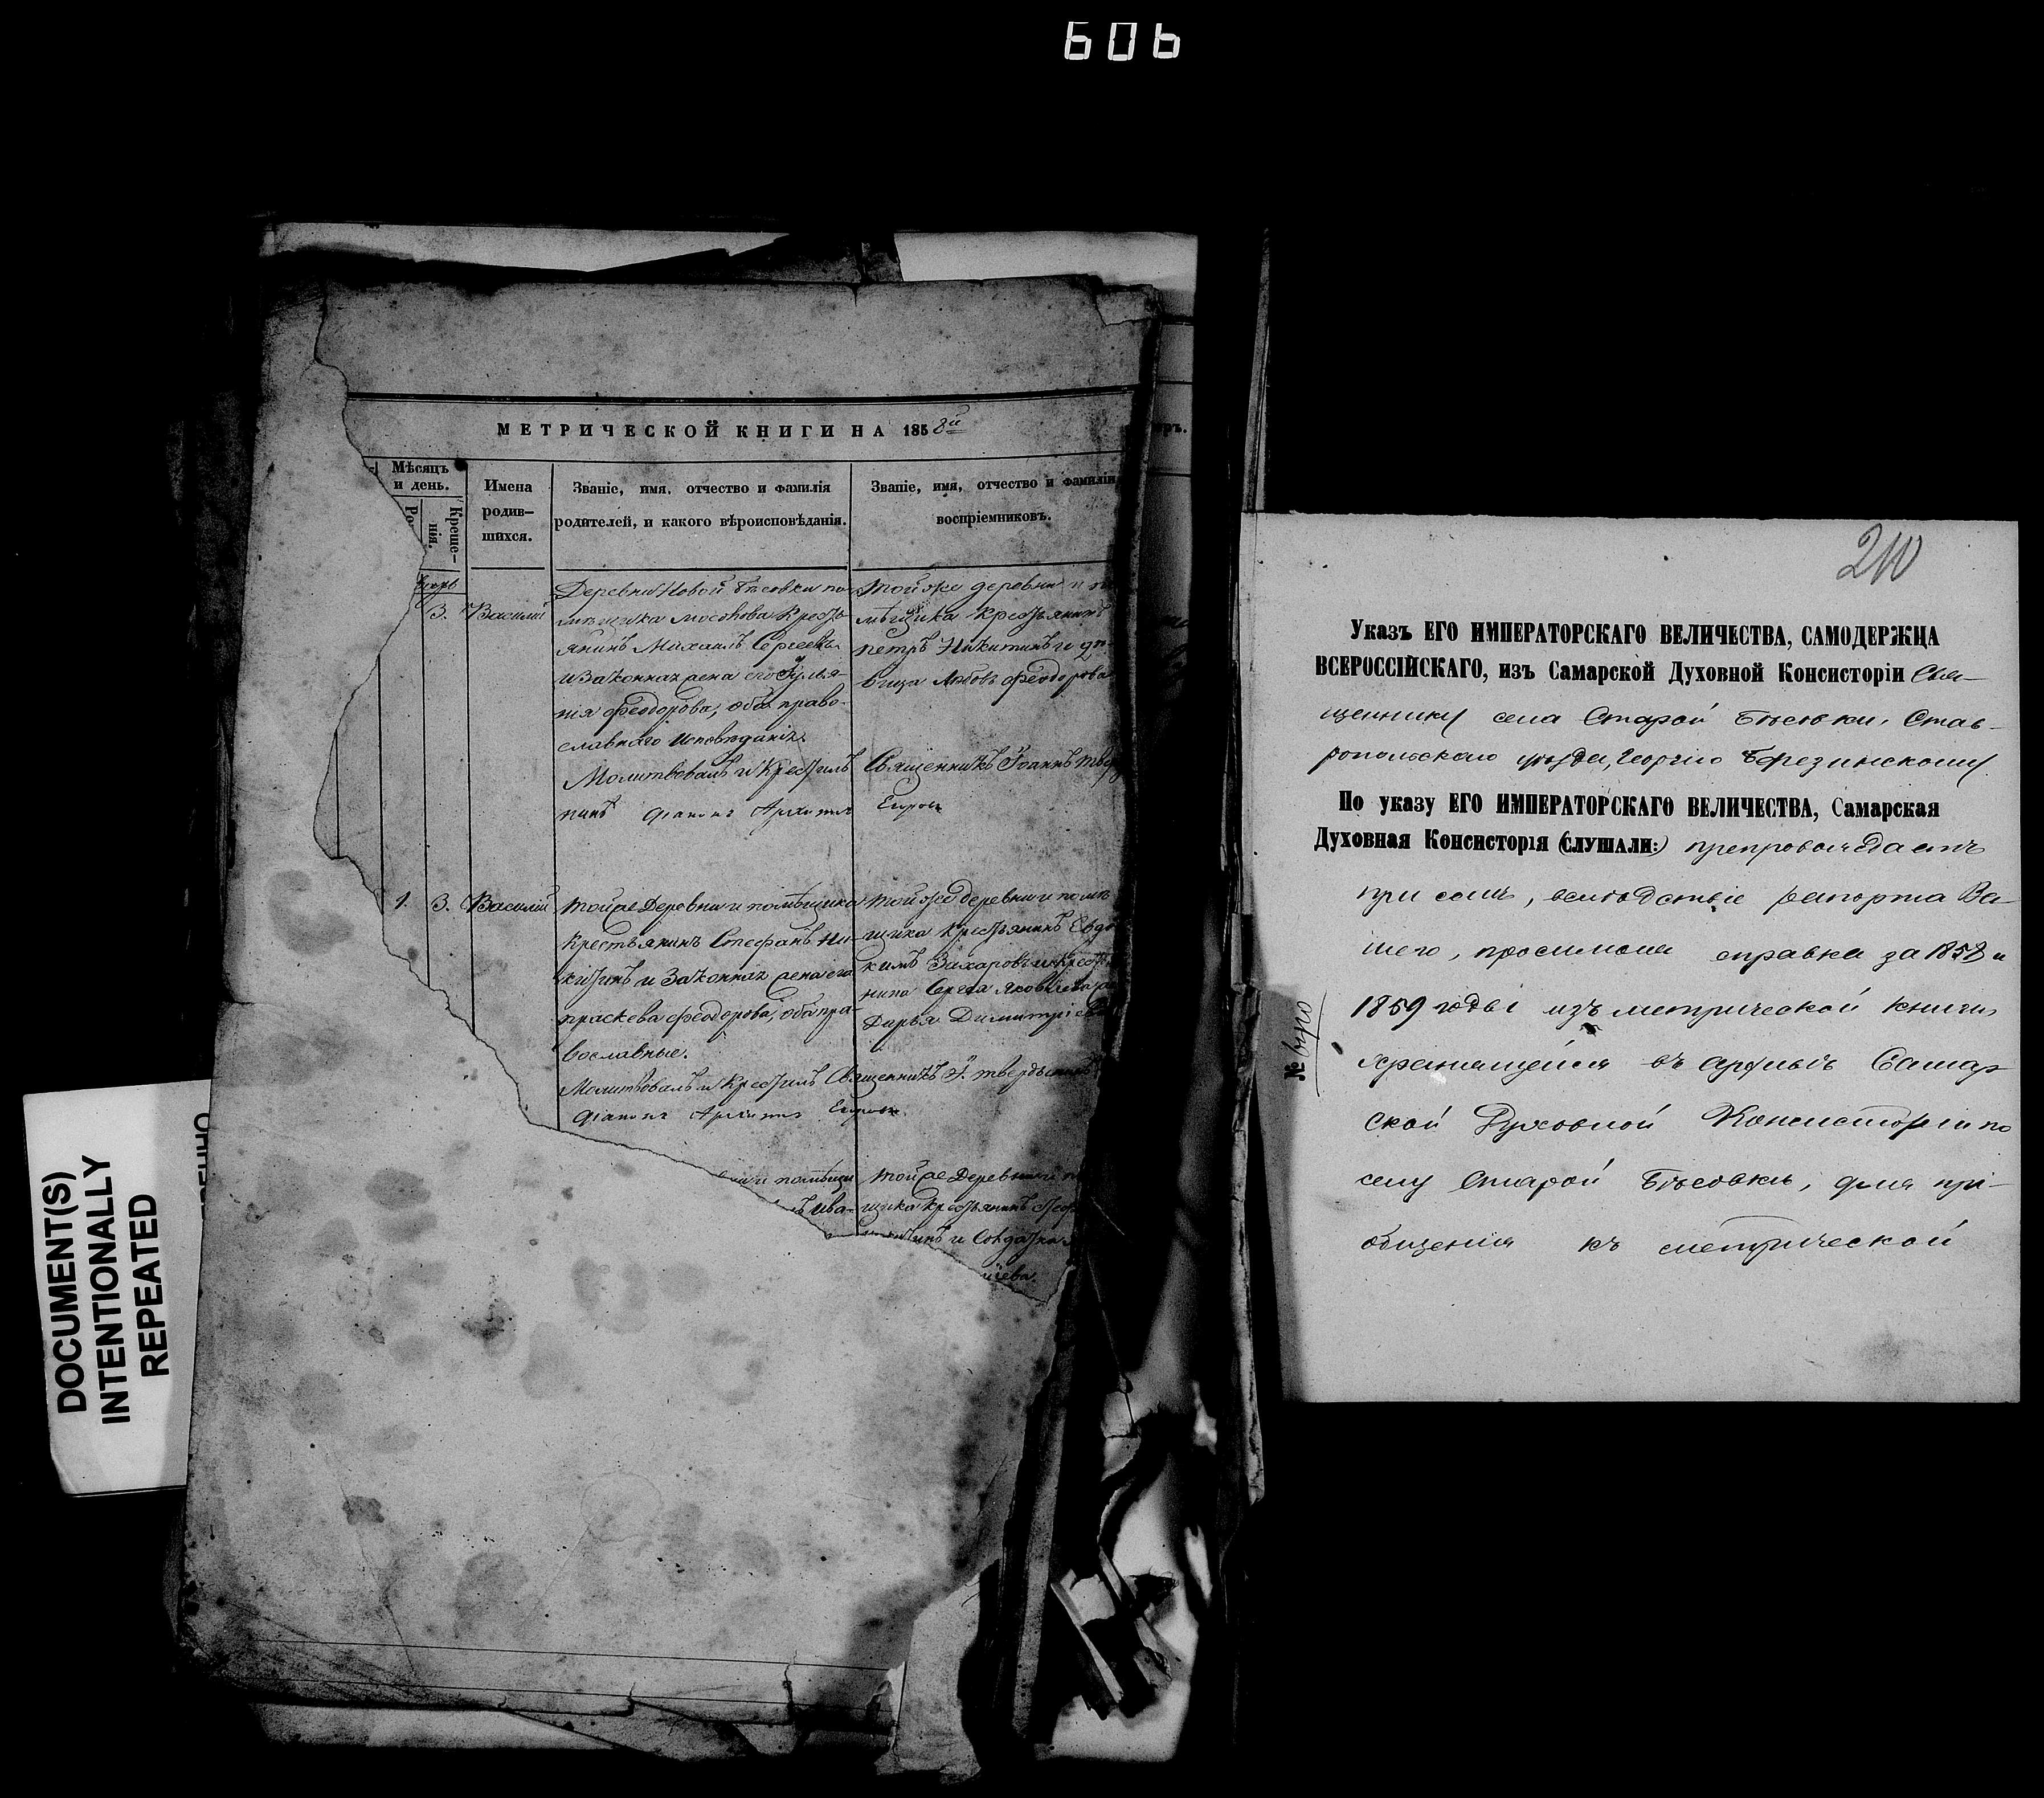 606
DOCUMENT(S)
INTENTIONALLY
REPEATED
МЕТРИЧЕСКОЙ КНИГИ НА 1858й
Мѣсяцъ
и день.
Ро
Креще-
нія.
Имена
родив-
шихся.
Званіе, имя, отчество и фамилія
родителей, и какого вѣроисповѣданія.
Званіе, имя, отчество и фамилія
воспріемниковъ.
3. Василій
Деревни Новой Бѣсовки по-
мѣщика Крестъ-
янинъ Михаилъ Сергеевъ
и законная жена его Іулья-
нія Феодорова, оба право-
славнаго исповѣданія.
Молитвовалъ и крестилъ
Священникъ Іоаннъ
Той же деревни и по
мѣщика крестьянинъ
Петръ Никитинъ и дѣ-
вица Любовь Феодорова
1. 3. Василій
Той же деревни и помѣщика
крестьянинъ Стефанъ Ни-
китинъ и законная жена его
Праскева Феодорова, оба пра-
вославные.
Молитвовалъ и крестилъ Священникъ І.
Той же деревни и помѣ
щика крестьянинъ Евдо
кимъ Захаровъ и
нина Сергея Яковлева
Дарья Димитріева
и помѣщи
Ива-
Той же деревни и
щика крестьянинъ
и Солдатка
210
Указъ ЕГО ИМПЕРАТОРСКАГО ВЕЛИЧЕСТВА, САМОДЕРЖЦА
ВСЕРОССІЙСКАГО, изъ Самарской Духовной Консисторіи Свя-
щеннику села Старой Бѣсовки, Став-
ропольскаго уѣзда, Георгію Березинскому
По указу ЕГО ИМПЕРАТОРСКАГО ВЕЛИЧЕСТВА, Самарская
Духовная Консисторія (СЛУШАЛИ:) препровождаетъ
при семъ, вслѣдствіе рапорта Ва-
шего, просимыя справки за 1858 и
1859 годы изъ метрической книги,
хранящейся въ архивѣ Самар
ской Духовной Консисторіи по
селу Старой Бѣсовкѣ, для прі-
общенія къ метрической
№